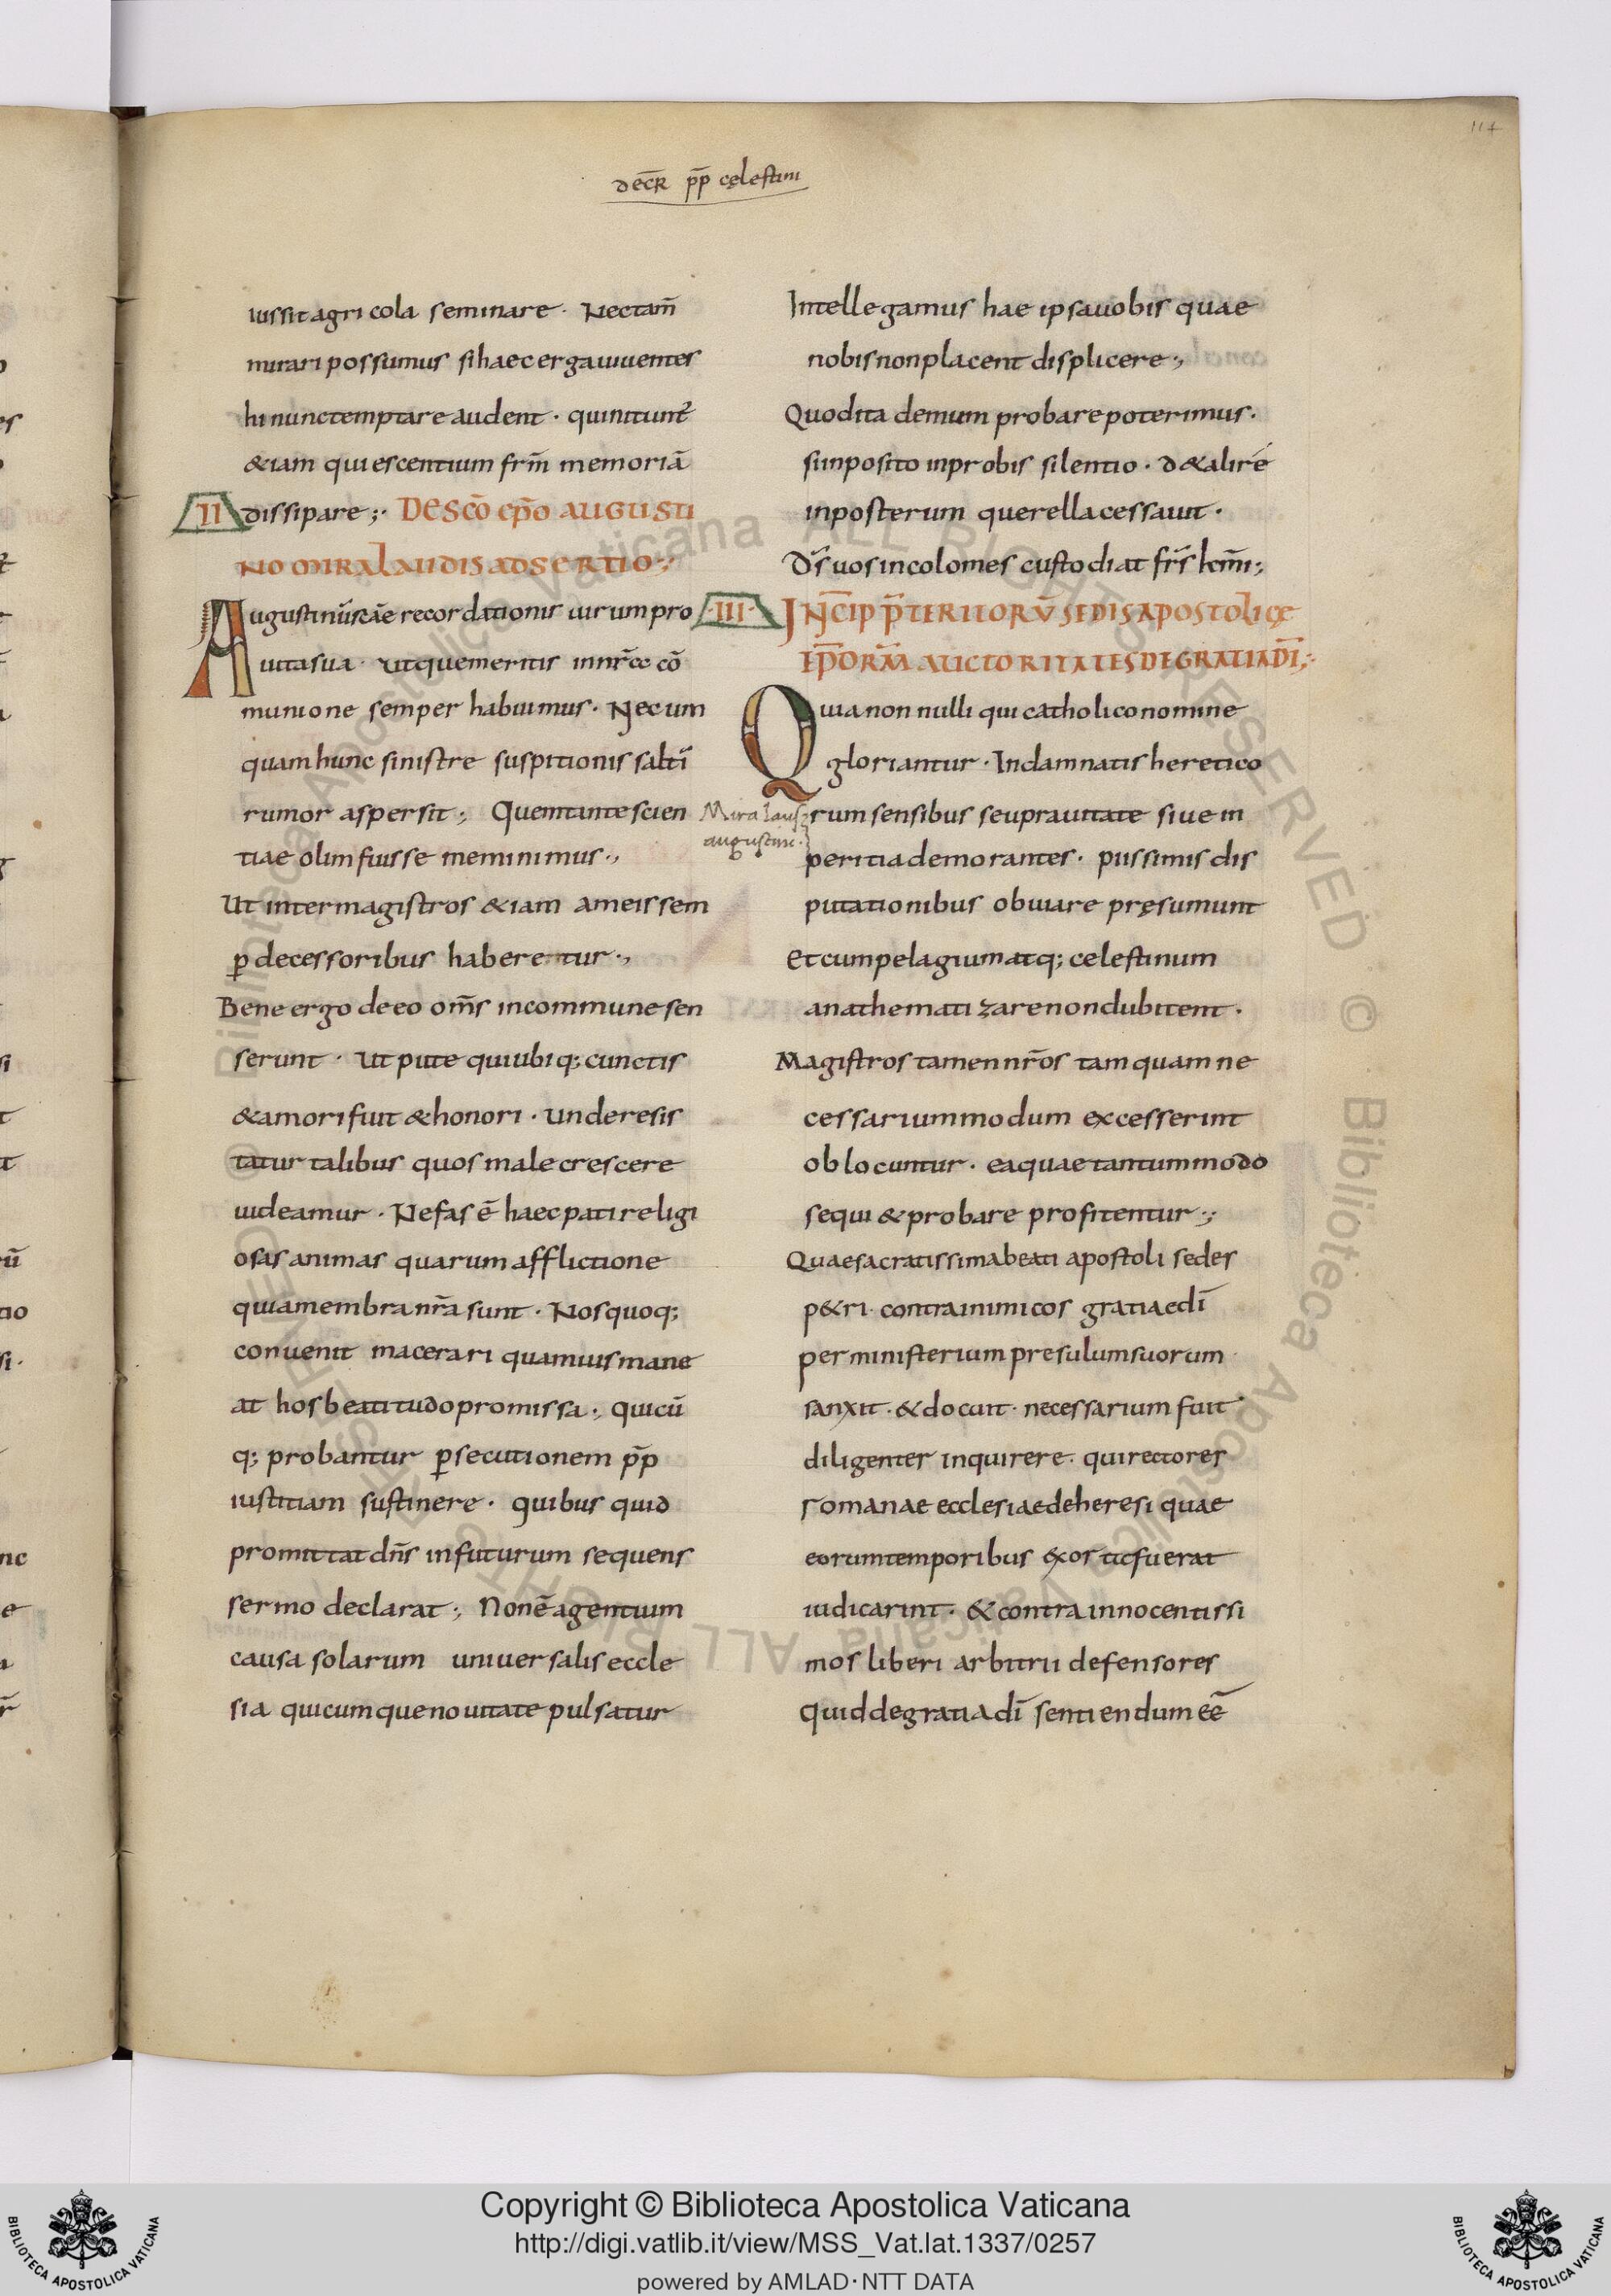 114
decr̄ pp̄ celestini
iussit agricola seminare · Nectam̄
mirari possumus si haec erga uiuentes
hi nunc temptare audent · qui nitunt᷑
&iam quiescentium frm̄ memoriā
II dissipare ;· DE SC̄O EP̄O AUGUSTI
NO MIRA LAUDIS ADSERTIO ;·
Augustinū sc̄ae recordationis uirum pro
uita sua · ut que meritis in nr̄ec cō
munione semper habuimus · Nec um
quam hunc sinistre suspitionis saltī
rumor aspersit ·, Quem tante scien
tiae olim fuisse meminimus ·,
Ut inter magistros &iam ameis sem
ꝑ decessoribus haberentur ·,
Bene ergo de eo om̄s in commune sen
serunt · Ut pute qui ubiq; cunctis
& amori fuit & honori · Unde resis
tatur talibus quos male crescere
uideamur · Nefas ē haec pati religi
osas animas quarum afflictione
quia membra nr̄a sunt · Nos quoq;
conuenit macerari quamuis mane
at hos beatitudo promissa ·, quicū
q; probantur ꝑsecutionem pp̄
iustitiam sustinere · quibus quid
promittat dn̄s in futurum sequens
sermo declarat ·, Non ē agentium
causa solarum uniuersalis eccle
sia quicumque nouitate pulsatur
Intellegamus hae ipsa uobis quae
nobis non placent displicere ·,
Quod ita demum probare poterimus ·
si inposito inprobis silentio · d& alire
in posterum querella cessauit ·
Dſ̄ uos incolomes custodiat frs̄ kmī ·,
·III· INCIP̄ P̄TERITORV̄ SEDIS APOSTOLICĘ
EP̄ORM̄ AUCTORITATES DE GRATIA DĪ ;·
Quia non nulli qui catholico nomine
gloriantur · In damnatis heretico
Mira laus
augustini ·
rum sensibus seu prauitate siue in
peritia demorantes · piissimis dis
putationibus obuiare pręsumunt
Et cum pelagium atq; celestinum
anathematizare non dubitent ·
Magistros tamen nr̄os tamquam ne
cessarium modum excesserint
oblocuntur · ea quae tantummodo
sequi & probare profitentur ·;
Quae sacratissima beati apostoli sedes
p&ri · contra inimicos gratiae dī
per ministerium presulum suorum
sanxit · & docuit · necessarium fuit
diligenter inquirere · qui rectores
romanae ecclesiae de heresi quae
eorum temporibus exorta fuerat
iudicarint · & contra innocentissi
mos liberi arbitrii defensores
quid de gratia dī sentiendum eē
Copyright © Biblioteca Apostolica Vaticana
http://digi.vatlib.it/view/MSS_Vat.lat.1337/0257
powered by AMLAD·NTT DATA